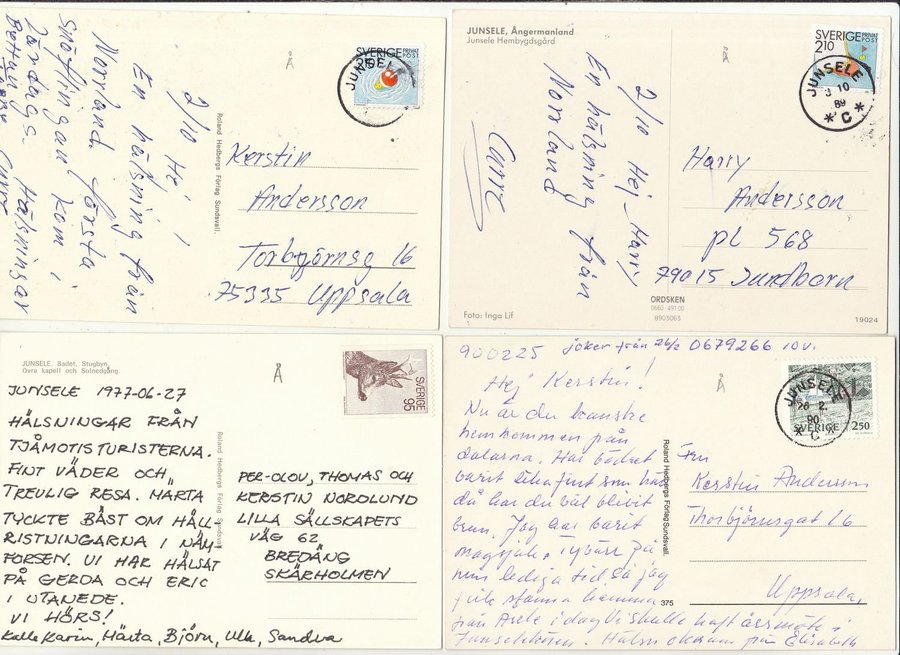 2/10 Hej
En hälsning från
Norrland. första
snöflingan kom i
lördags. Hälsningar
Curre
SVERIGE PRIVAT POST
JUNSELE
Roland Hedbergs Förlag Sundsvall.
Å
Kerstin
Andersson
Torbjörnsg 16
75335 Uppsala
JUNSELE, Ångermanland
Junsele Hembygdsgård
Å
2/10 Hej Harry
En hälsning från
Norrland
Curre
SVERIGE PRIVAT POST
2.10
JUNSELE
3 10
89
* C *
Harry
Andersson
pl 568
79015 Sundborn
ORDSKEN
0660 491 00
8903063
Foto: Inga Lif
19024
JUNSELE. Badet, Stugbyn,
Övra kapell och Solnedgång.
Å
SVERIGE
95
JUNSELE 1977-06-27
HÄLSNINGAR FRÅN
TJÅMOTISTURISTERNA.
FINT VÄDER OCH
TREVLIG RESA. MÄRTA
TYCKTE BÄST OM HÄLL-
RISTNINGARNA I NÄM-
FORSEN. VI HAR HÄLSAT
PÅ GERDA OCH ERIC
I UTANEDE.
VI HÖRS!
Kalle Karin, Märta, Björn, Ulla, Sandra
Roland Hedbergs Förlag Sundsvall
PER-OLOV, THOMAS OCH
KERSTIN NORDLUND
LILLA SÄLLSKAPETS
VÄG 62
BREDÄNG
SKÄRHOLMEN
900225 joker från 26/2 0679266 10 v.
Hej Kerstin!
Nu är du kanske
hemkommen från
dalarna. Har vädret
varit lika fint som här
då har du väl blivit
brun. Jag har varit
magsjuk, tyvärr på
min lediga tid så jag
fick stanna hemma
från Åsele i dag Vi skulle haft årsmöte i
Junselekören. Hälsn från Elisabeth
Å
JUNSELE
26 2.
90
* C *
SVERIGE 2.50
Roland Hedbergs Förlag Sundsvall.
375
Fru
Kerstin Andersson
Thorbjörnsgat 16
Uppsala